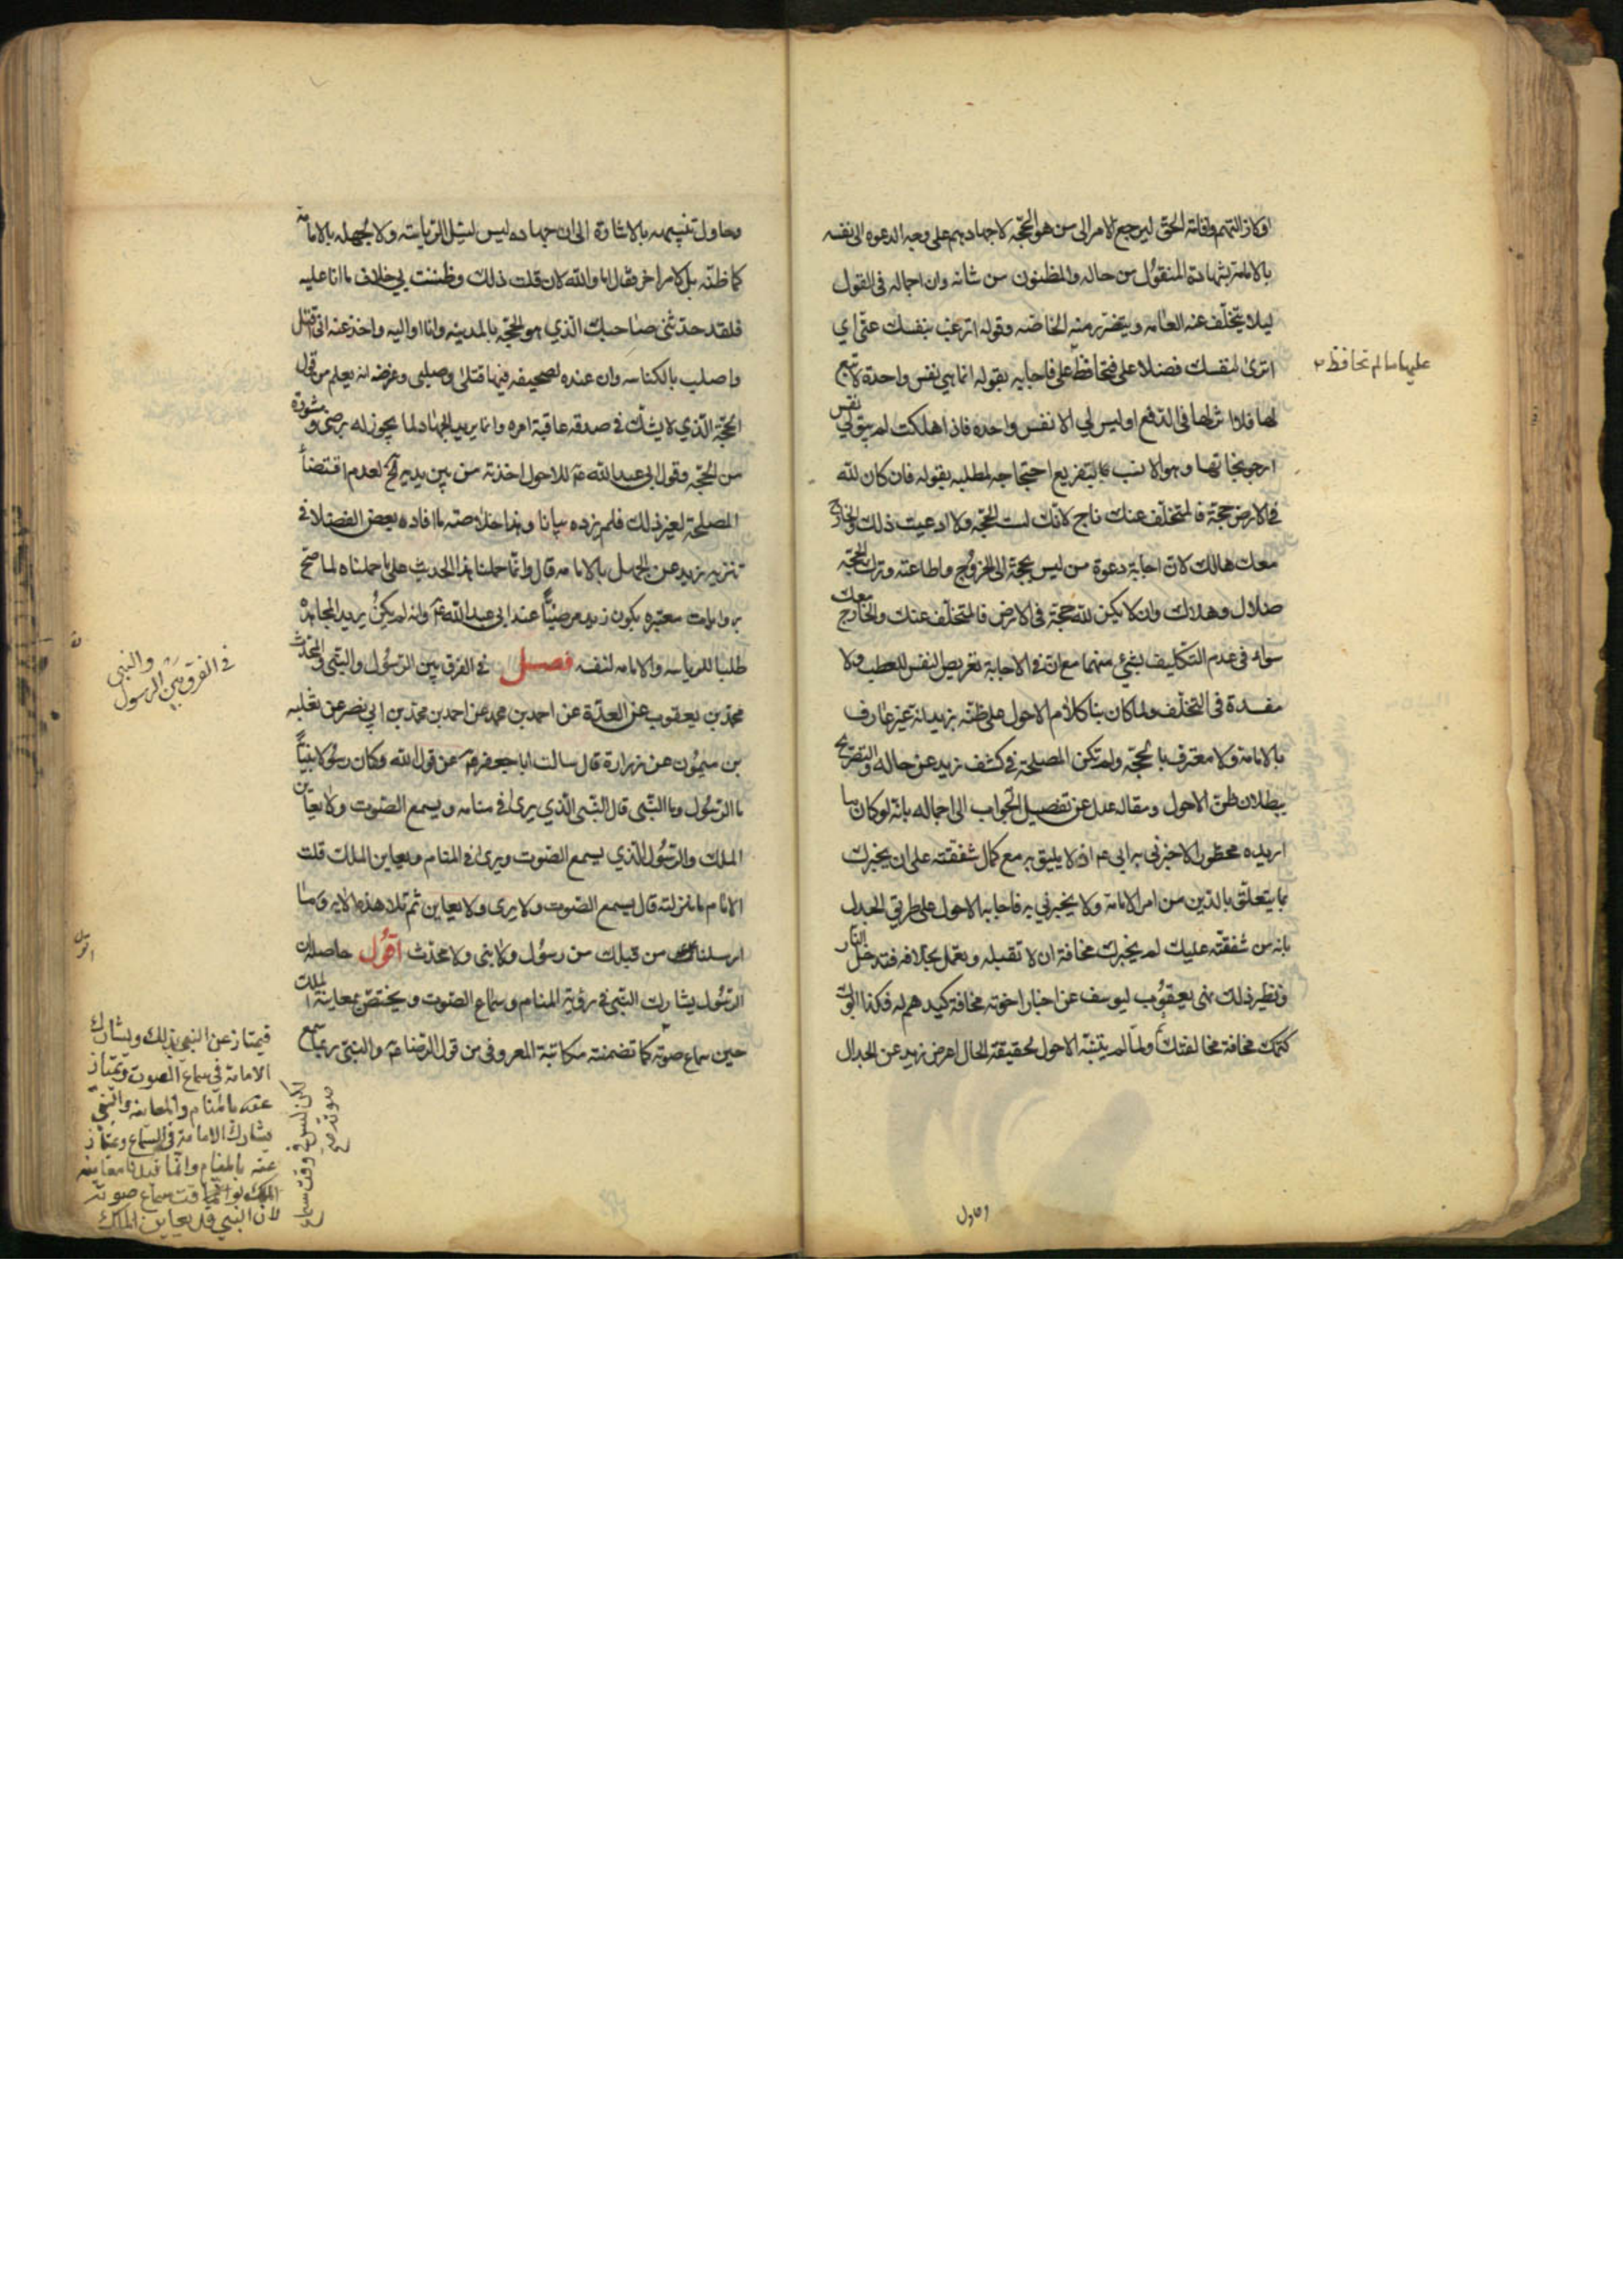 اوكاذ التهم وافائة الحق ليرجع الامر الى من هو الحجة لاجهادهم على وجه الدعوه الى نفسه
بالامامة بشهادة المنقول من حاله والمظنون من شانه وان اجماله فى القول
ليلا يتخلف عنه العامه ويتضرر منه الخاصه وقوله اترغب بنفسك عنى اى
اترى لنفسك فضلا على فتحافظ على فاجابه بقوله انما هى نفس واحدة لا تبع
عليها ما لم تحافظ
لها فلا اثر لها فى الدفع او ليس لي الا نفس واحده فاذا هلكت لم يبق لي نفس
ارجو نجاتها وهو الانسب بالتفريع احتجاجه لمطلبه بقوله فان كان لله
فى الارض حجة فالمتخلف عنك ناج لانك لست الحجه ولا ادعيت ذلك والخارج
معك هالك لان اجابة دعوة من ليس بحجة الى الخروج واطاعته وترك الحجه
ضلال وهلاك وان لا يكن لله حجة فى الارض فالمتخلف عنك والخارج معك
سواء فى عدم التكليف بشئ منهما مع ان فى الاجابة تعريض النفس للعطب ولا
مفسدة فى التخلف ولما كان بنا كلام الاحول على ظنه بزيد انه غير عارف
بالامامة ولا معترف بالحجه ولم تكن المصلحة فى كشف زيد عن حاله والتصريح
ببطلان ظن الاحول ومقاله عدل عن تفصيل الجواب الى اجماله بانه لو كان ما
اريده محظورا لاخبرنى به ابى عم اذ لا يليق به مع كمال شفقته على ان يخبرك
بما يتعلق بالدين من امر الامامة ولا يخبرني به فاجابه الاحول على طريق الجدل
بانه من شفقته عليك لم يخبرك مخافة ان لا تقبله وتعمل بخلافه فتدخل النار
ونظير ذلك نهى يعقوب ليوسف عن اخبار اخوته مخافة كيدهم له فكذا ابوك
كتمك مخافة مخالفتك ولما لم يتنبه الاحول لحقيقة الحال اعرض زيد عن الجدال
وحاول
وحاول تفهيمه بالاشارة الى ان جهاده ليس لنيل الرياسة ولا لجهله بالامامة
كما ظنه بل لامر اخر فقال اما والله لان قلت ذلك وظننت بي خلاف ما انا عليه
فلقد حدثنى صاحبك الذي هو الحجة بالمدينه وانا اواليه واخذ عنه انى اقتل
واصلب بالكناسه وان عنده لصحيفه فيها قتلى وصلبى وغرضه انه يعلم من قول
الحجة الذي لا يشك في صدقه عاقبة امره وانما يريد الجهاد لما يجوز له برضى ومشورة
من الحجه وقول ابى عبد الله عم للاحول اخذته من بين يديه الخ لعدم اقتضاء
المصلحة لغير ذلك فلم يزده بيانا وهذا خلاصة ما افاده بعض الفضلا فى
تنزيه زيد عن الجهل بالامامه قال وانما حملنا هذا الحديث على ما حملناه لما صح
بروايات معتبره بكون زيد مرضيا عند ابى عبد الله عم وانه لم يكن يريد المجاهدة
طلبا للرياسه والامامه لنفسه فصل في الفرق بين الرسول والنبى والمحدث
في الفرق بين الرسول والنبي
محمد بن يعقوب عن العدة عن احمد بن محمد عن احمد بن محمد بن ابي نصر عن ثعلبه
بن ميمون عن زرارة قال سالت ابا جعفر عم عن قول الله وكان رسولا نبيا
ما الرسول وما النبى قال النبى الذي يرى فى منامه ويسمع الصوت ولا يعاين
الملك والرسول الذي يسمع الصوت ويرى فى المنام ويعاين الملك قلت
الامام ما منزلته قال يسمع الصوت ولا يرى ولا يعاين ثم تلا هذه الايه وما
ارسلنا من قبلك من رسول ولا نبى ولا محدث اقول حاصله ان
اقول
الرسول يشارك النبى فى رؤية المنام وسماع الصوت ويختص بمعاينة الملك
حين سماع صوته كما تضمنته مكاتبة المعروفى من قول الرضا عم والنبى ربما سمع
فيمتاز عن النبى بذلك ويشارك
الامامة في سماع الصوت ويمتاز
عنه بالمنام والمعاينه والنبي
يشارك الامامة فى السماع ويمتاز
عنه بالمنام وانما قيد معاينه
الملك بوقت سماع صوته
لان النبي قد يعاين الملك
لكن ليس في وقت سماع
صوته صح